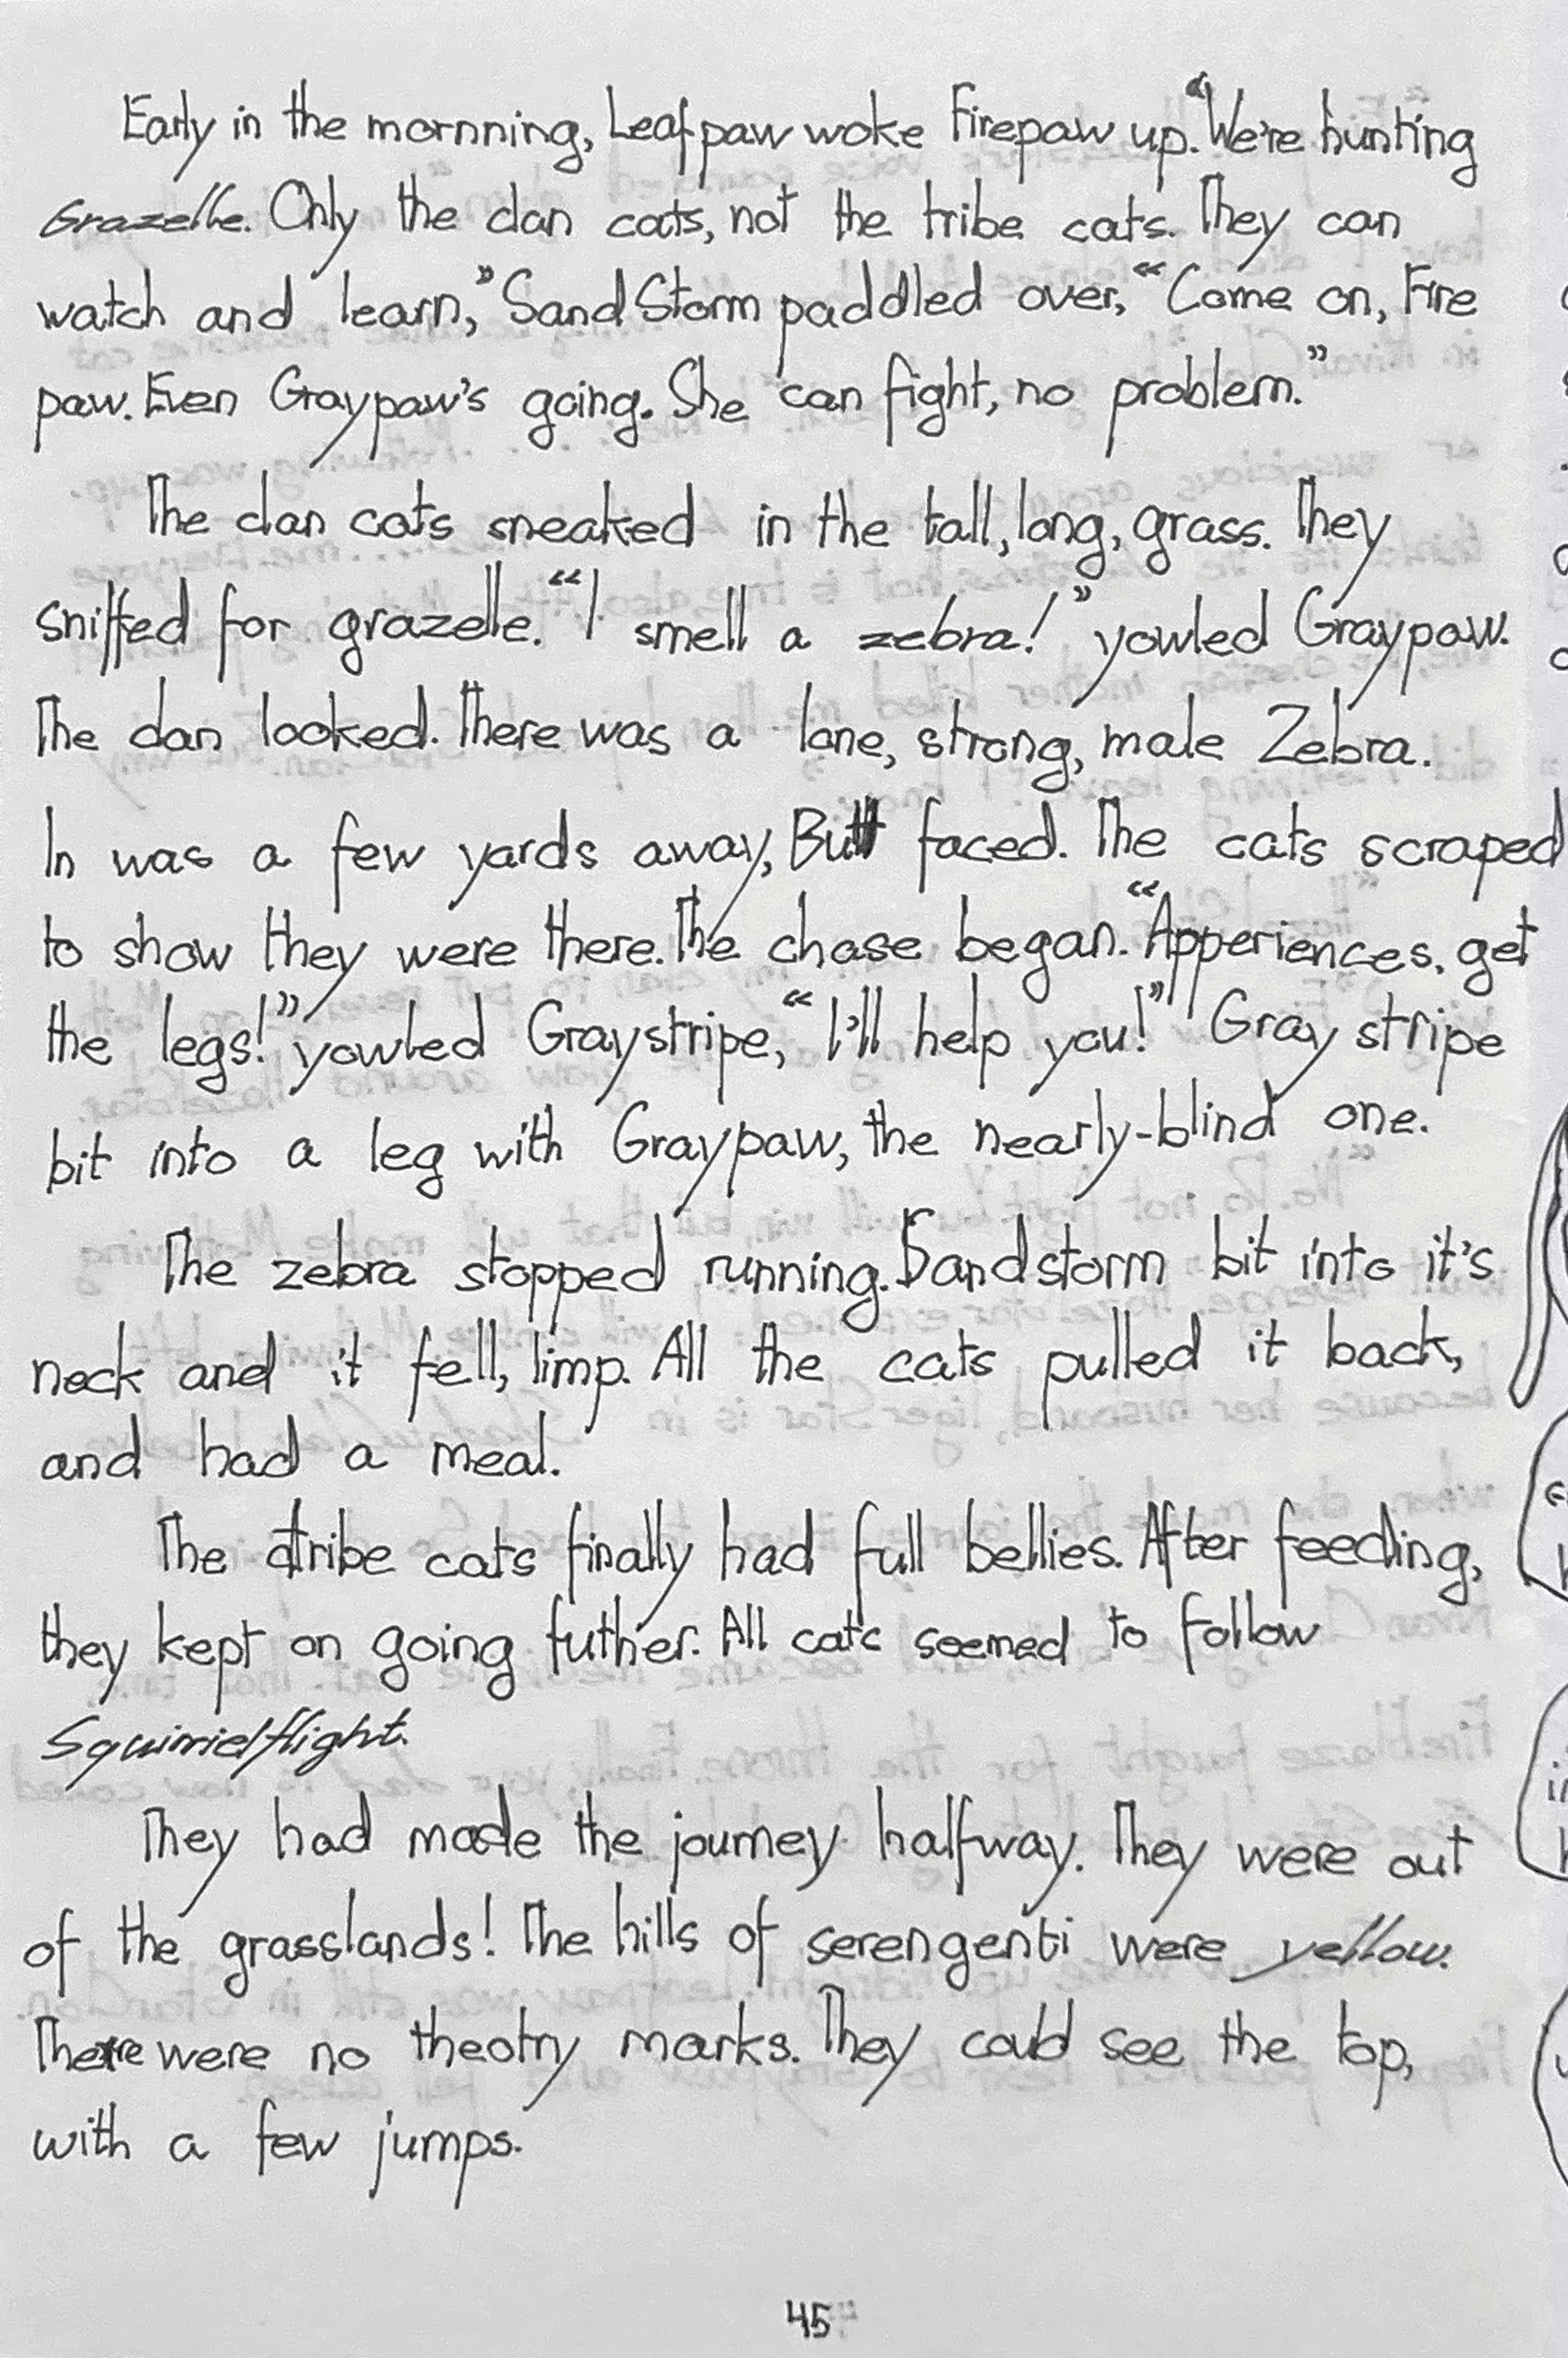 Early in the mornning, Leafpaw woke Firepaw up. "We're hunting
Grazelle. Only the clan cats, not the tribe cats. They can
watch and learn," SandStorm paddled over, "Come on, Fire
paw. Even Graypaw's going. She can fight, no problem."
The clan cats sneaked in the tall, long, grass. They
sniffed for grazelle. "I smell a zebra!" yowled Graypaw.
The clan looked. There was a lone, strong, male Zebra.
In was a few yards away, Butt faced. The cats scraped
to show they were there. The chase began. "Apperiences, get
the legs!" yowled Graystripe, "I'll help you!" Gray stripe
bit into a leg with Graypaw, the nearly-blind one.
The zebra stopped running. Sandstorm bit into it's
neck and it fell, limp. All the cats pulled it back,
and had a meal.
The tribe cats finally had full bellies. After feeding,
they kept on going futher. All cats seemed to follow
Squirrielflight.
They had made the journey halfway. They were out
of the grasslands! The hills of serengenti were yellow.
There were no theotry marks. They could see the top,
with a few jumps.
45